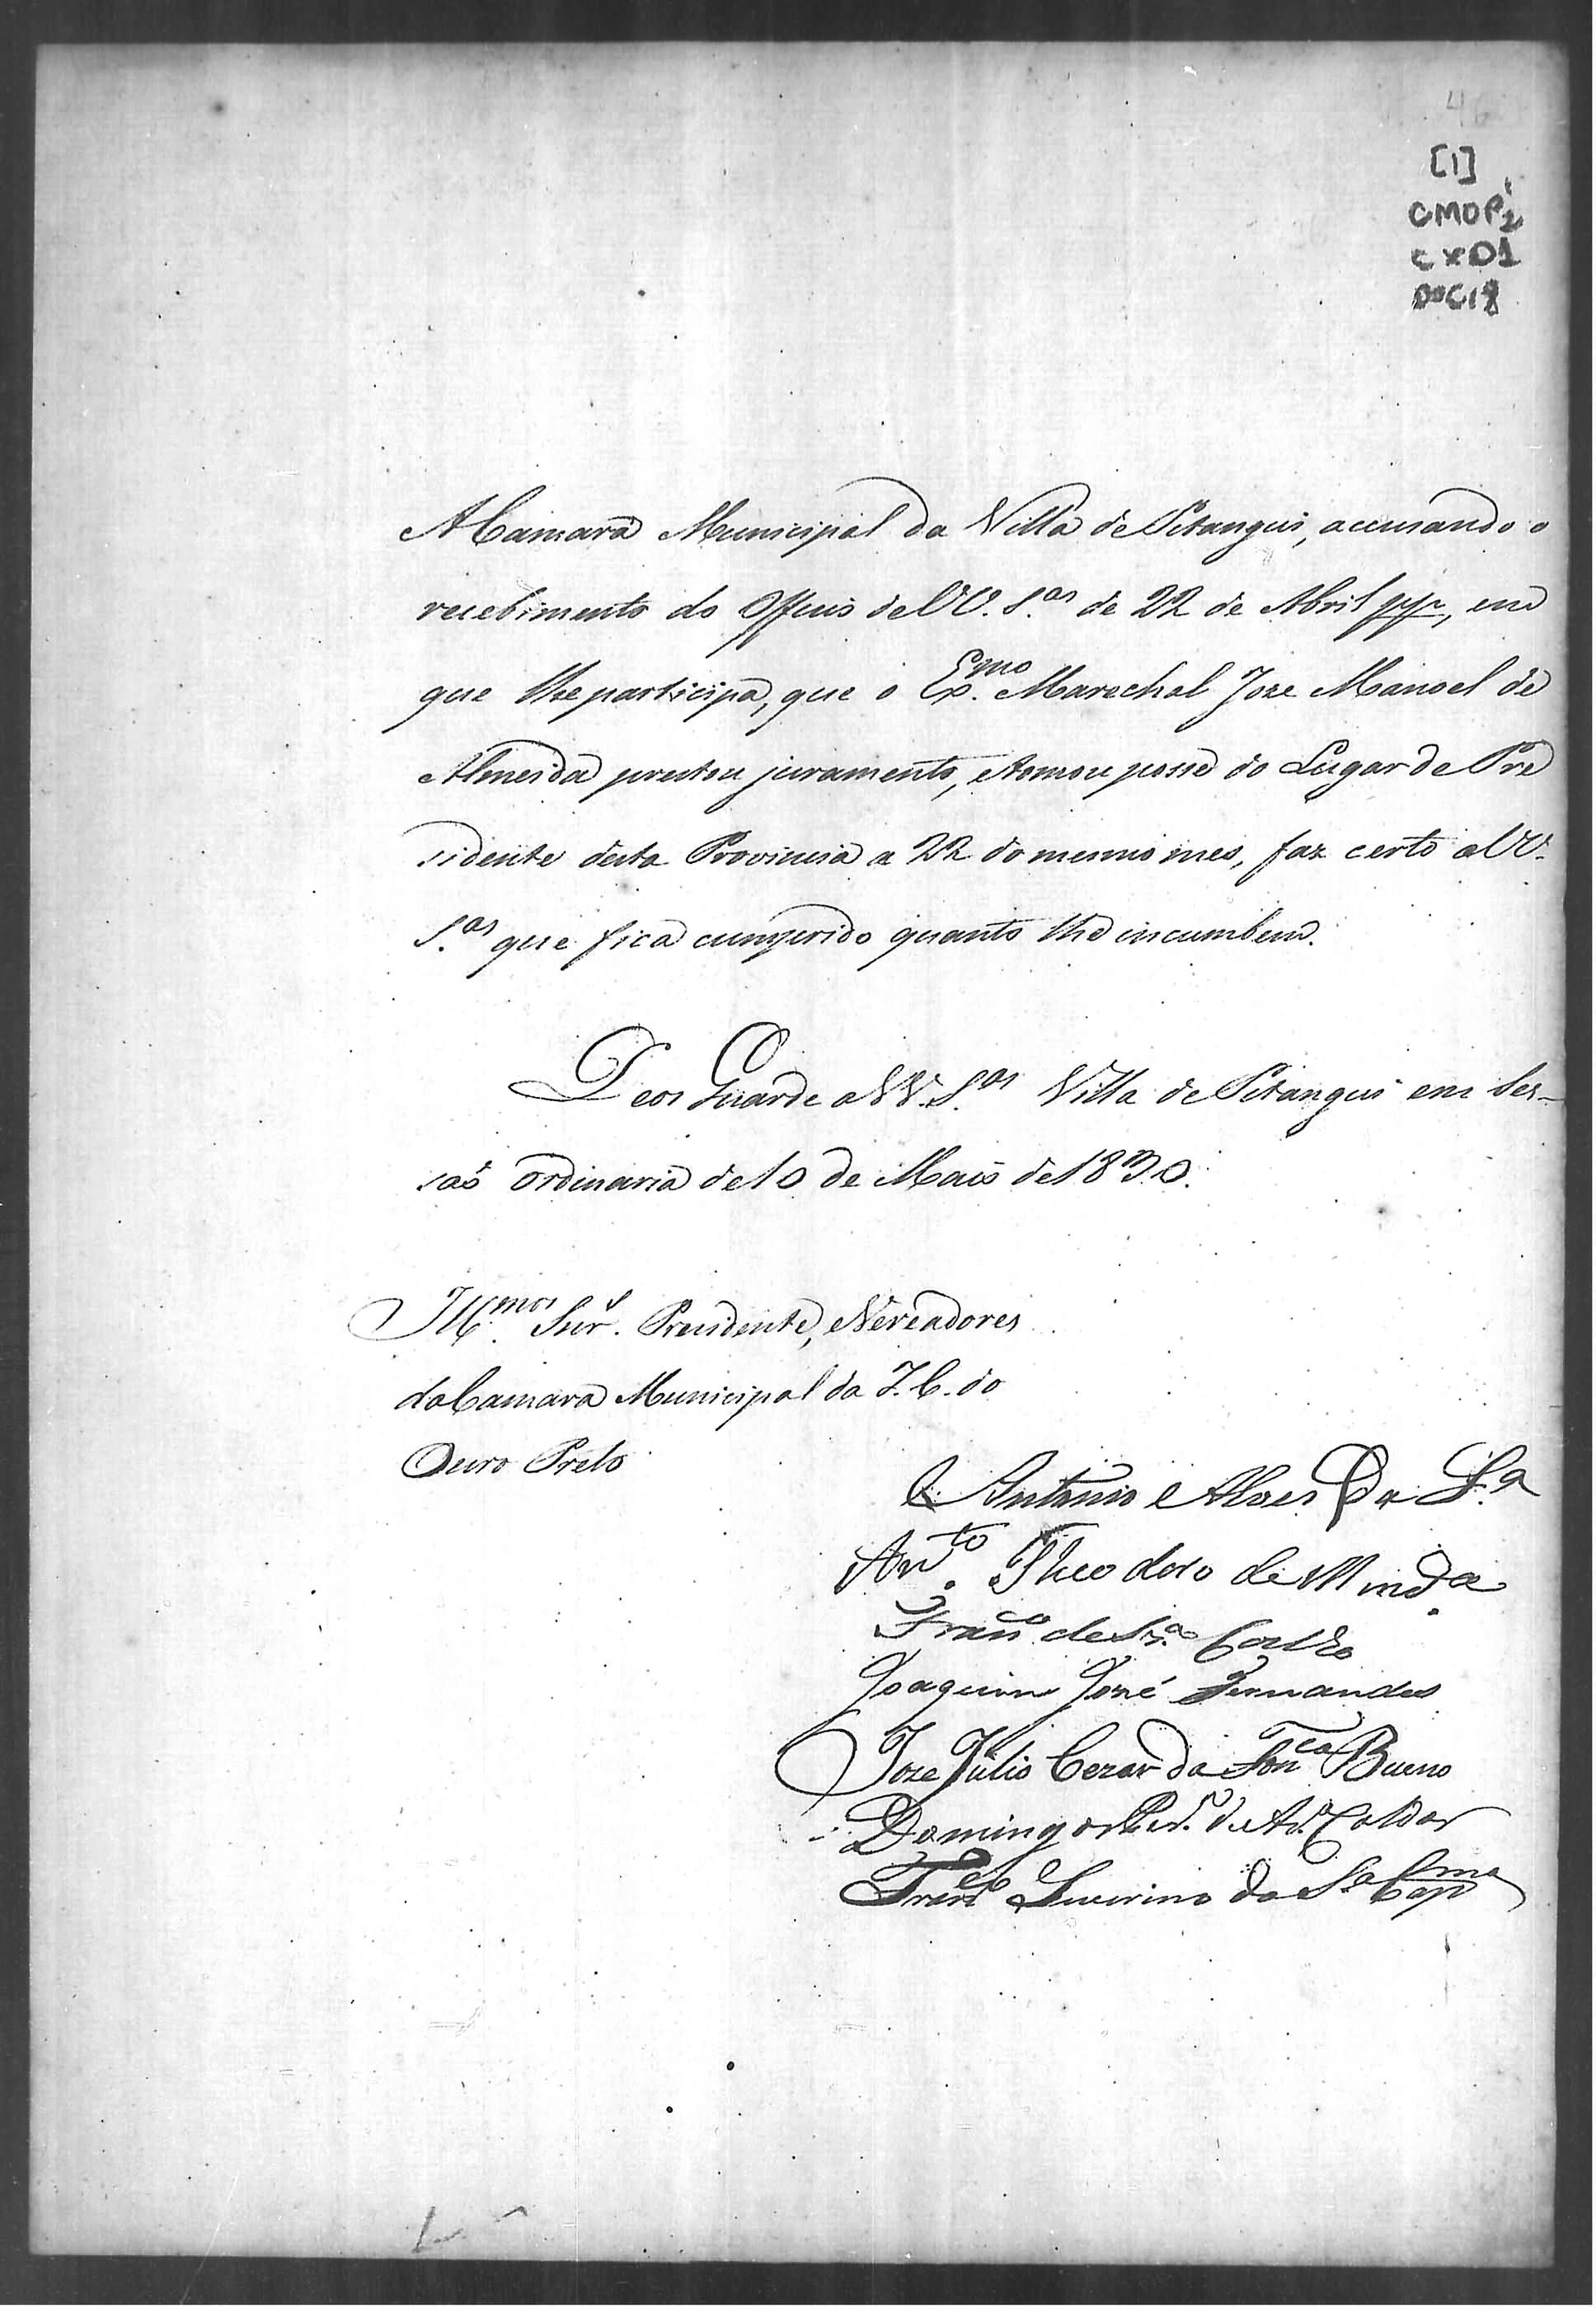 46
[1]
CMOP2
CX01
DOC18
A Camara Municipal da Villa de Pitangui, acusando o
recebimento do Officio de VV. S.as de 22 de Abril pp, em
que lhe participa, que o Ex.mo Marechal Joze Manoel de
Almeida prestou juramento, e tomou posse do Lugar de Pre
sidente desta Provincia a 22 do mesmo mes, faz certo a VV.
S.as que fica cumprido quanto lhe incumbem.
Deos Guarde a VV. S.as Villa de Pitangui em Ses-
saõ ordinaria de 10 de Maio de 1830.
Ill.mos Snr.s Presidente, e Vereadores
da Camara Municipal da I. C. do
Ouro Preto
Antonio Alves Da S.a
An.to Theodoro de Mind.ça
Fran.co de Sz.a Coelho
Joaquim José Fernandes
Joze Julio Cezar da Fon.ca Bueno
Domingos de Ar.o Caldas
Fran.co Severino da S.a Cap